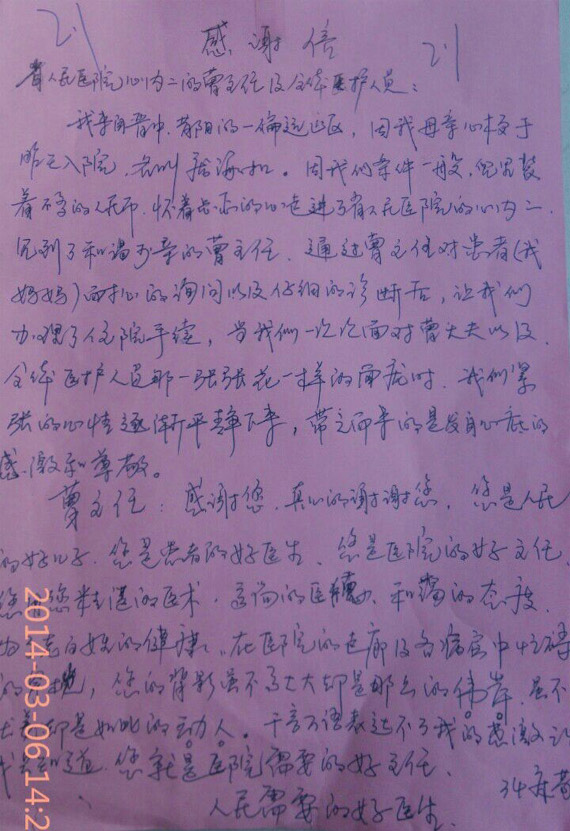 21
感谢信
21
省人民医院心内二的曹主任及全体医护人员：
我来自晋中，昔阳的一偏远山区，因我母亲心梗于
昨日入院，名叫。因我们条件一般，兜里装
着不多的人民币，怀着忐忑的心走进了省人民医院的心内二，
见到了和蔼可亲的曹主任，通过曹主任对患者(我
妈妈)面对心的询问以及仔细的诊断后，让我们
办理了住院手续，当我们一次次面对曹大夫以及
全体医护人员那一张张花一样的面庞时，我们紧
张的心情逐渐平静下来，带之而来的是发自心底的
感激和尊敬。
曹主任：感谢您，真心的谢谢您，您是人民
的好儿子，您是患者的好医生，您是医院的好主任，
您精湛的医术，高尚的医德，和蔼的态度，
百姓的健康，在医院的走廊及各病房中忙碌
的，您的背影虽不高大大却是那么的伟岸，虽不
却是如此的动人。千言万语表达不了我的感激
我知道，您就是医院需要的好主任，
人民需要的好医生
34床
2014-03-06 14:2